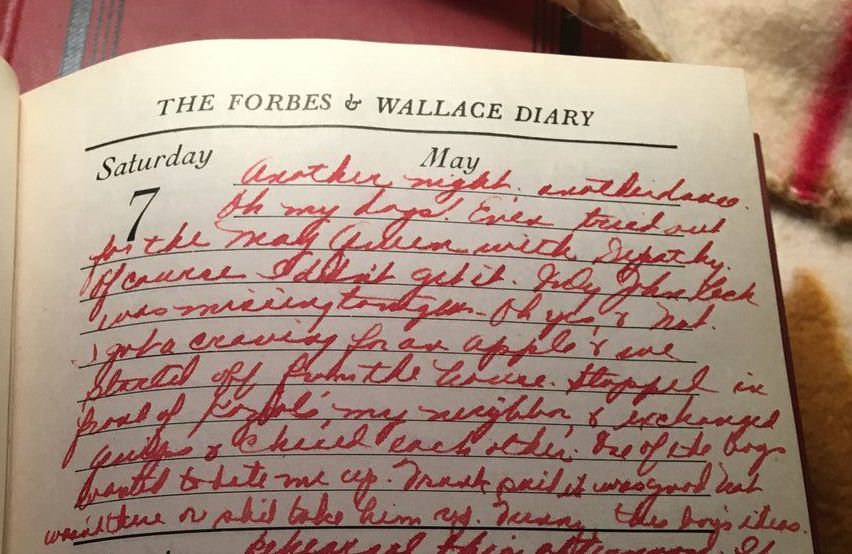 THE FORBES & WALLACE DIARY
Saturday May
7
Another night. another dance.
Oh my dogs! Even tried out
for the May Queen with
Of course I didn't get it. John
was missing Oh yes, & Nat.
I got a craving for an apple & we
started off from the house. Stopped in
front of my neighbor, & exchanged
quips & each other. One of the boys
wanted to me up. said it was good Nat
wasn't there or she'd take him up. Funny, the boys ideas.
Rehearsal this afternoon.